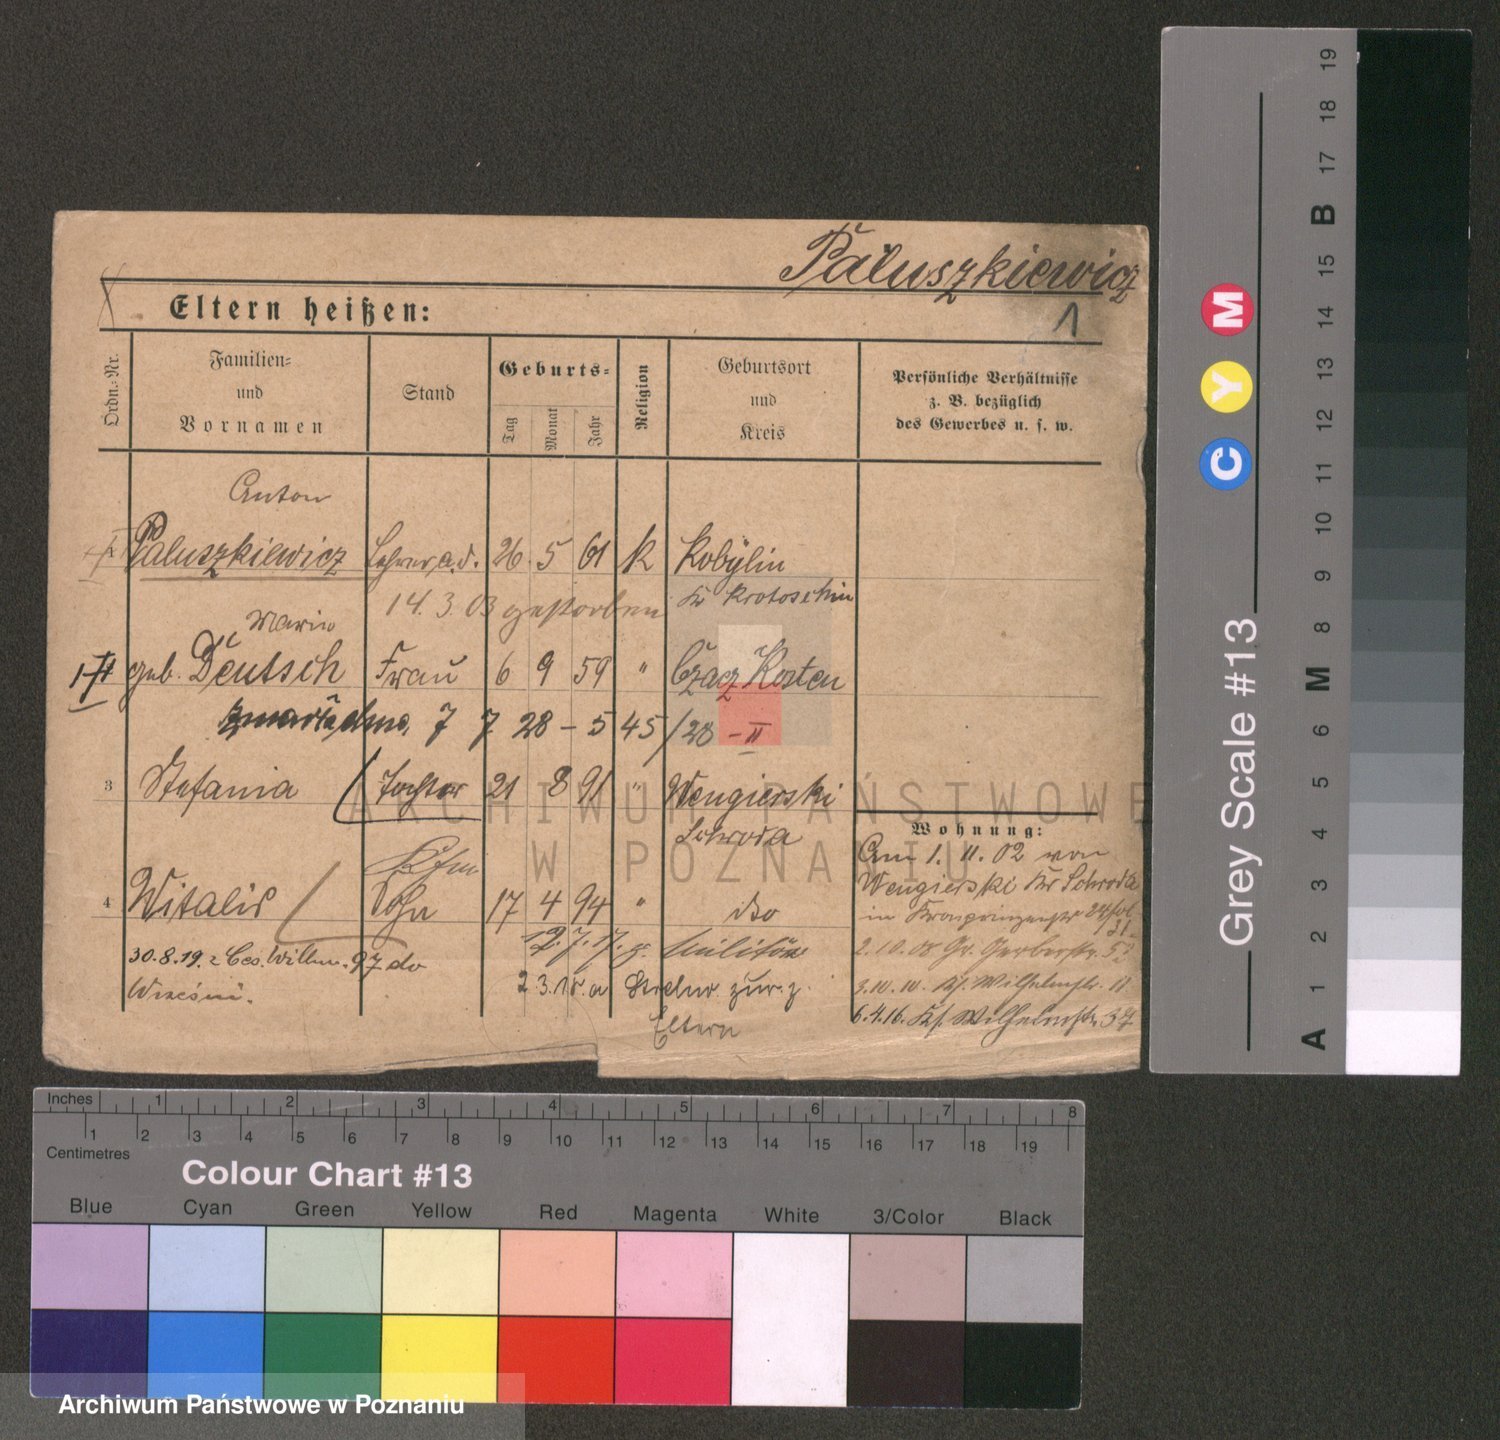 Paluszkiewicz
1
Eltern heißen:
Ordn.-Nr.
Familien-
und
Vornamen
Stand
Geburts-
Tag
Monat
Jahr
Religion
Geburtsort
und
Kreis
Persönliche Verhältnisse
z. B. bezüglich
des Gewerbes u. s. w.
Anton
Paluszkiewicz Lehrer a.d. 26. 5 61 k Kobylin
14. 3. 03 gestorben Kr Krotoschin
Maria
geb. Deutsch Frau 6 9 59 " Czacz Kosten
28 - 5 45 / 28 - II
3 Stefania Tochter 21 8 91 " Wengierski
Schroda
4 Witalis Sohn 17 4 94 " dto
12. 7. 17. z. Militär
30.8.19. z
2.3.18. a zur. z.
Eltern
Wohnung:
Am 1. 11. 02 von
Wengierski Kr Schroda
in Kronprinzenstr
2.10.08 Gr. Gerberstr.
3.10.10. Wilhelmstr.
6.4.16. Wilhelmstr. 37
ARCHIWUM PAŃSTWOWE
W POZNANIU
Grey Scale #13
C Y M
A 1 2 3 4 5 6 M 8 9 10 11 12 13 14 15 B 17 18 19
Inches 1 2 3 4 5 6 7 8
1 2 3 4 5 6 7 8 9 10 11 12 13 14 15 16 17 18 19
Centimetres
Colour Chart #13
Blue Cyan Green Yellow Red Magenta White 3/Color Black
Archiwum Państwowe w Poznaniu